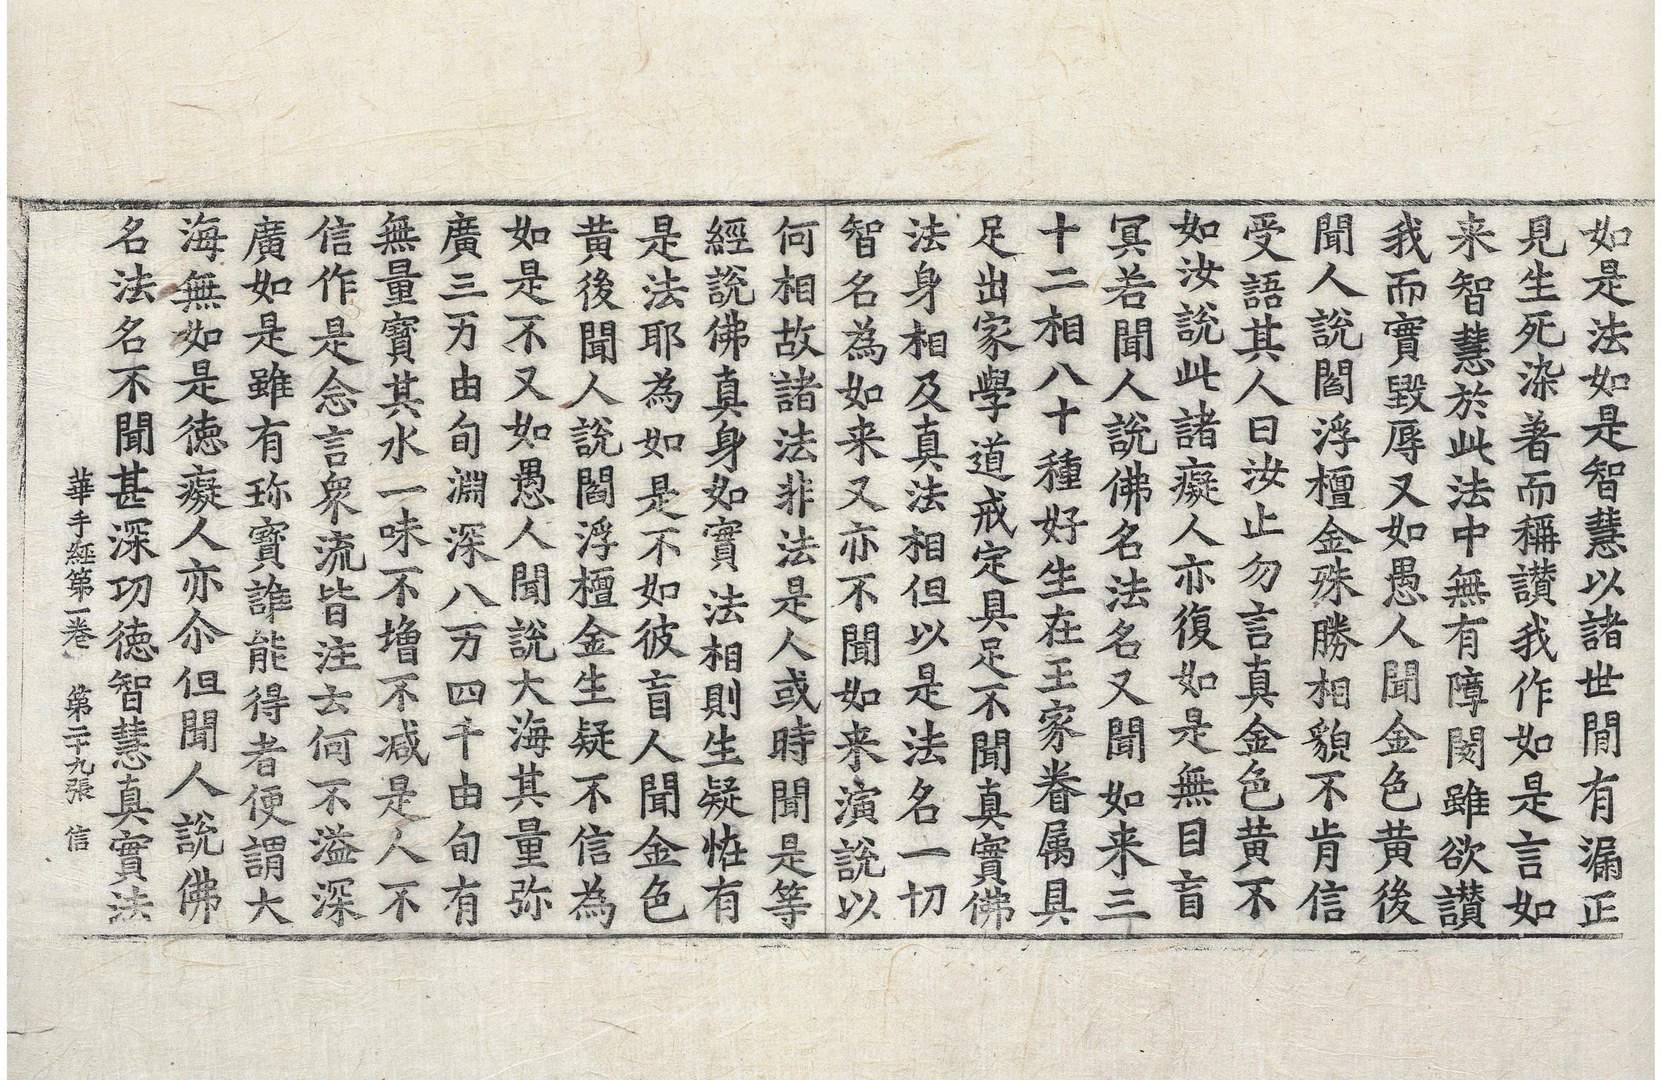 如是法如是智慧以諸世間有漏正
見生死染著而稱讃我作如是言如
来智慧於此法中無有障閡雖欲讃
我而實毀辱又如愚人聞金色黃後
聞人說閻浮檀金殊勝相貌不肯信
受語其人曰汝止勿言真金色黃不
如汝說此諸癡人亦復如是無目盲
冥若聞人說佛名法名又聞如来三
十二相八十種好生在王家眷属具
足出家學道戒定具足不聞真實佛
法身相及真法相但以是法名一切
智名為如来又亦不聞如来演說以
何相故諸法非法是人或時聞是等
經說佛真身如實法相則生疑恠有
是法耶為如是不如彼盲人聞金色
黃後聞人說閻浮檀金生疑不信為
如是不又如愚人聞說大海其量弥
廣三万由旬淵深八万四千由旬有
無量寶其水一味不增不減是人不
信作是念言衆流皆注去何不溢深
廣如是雖有珎寶誰能得者便謂大
海無如是徳癡人亦尒但聞人說佛
名法名不聞甚深功徳智慧真實法
華手經第一卷 第二十九張 信